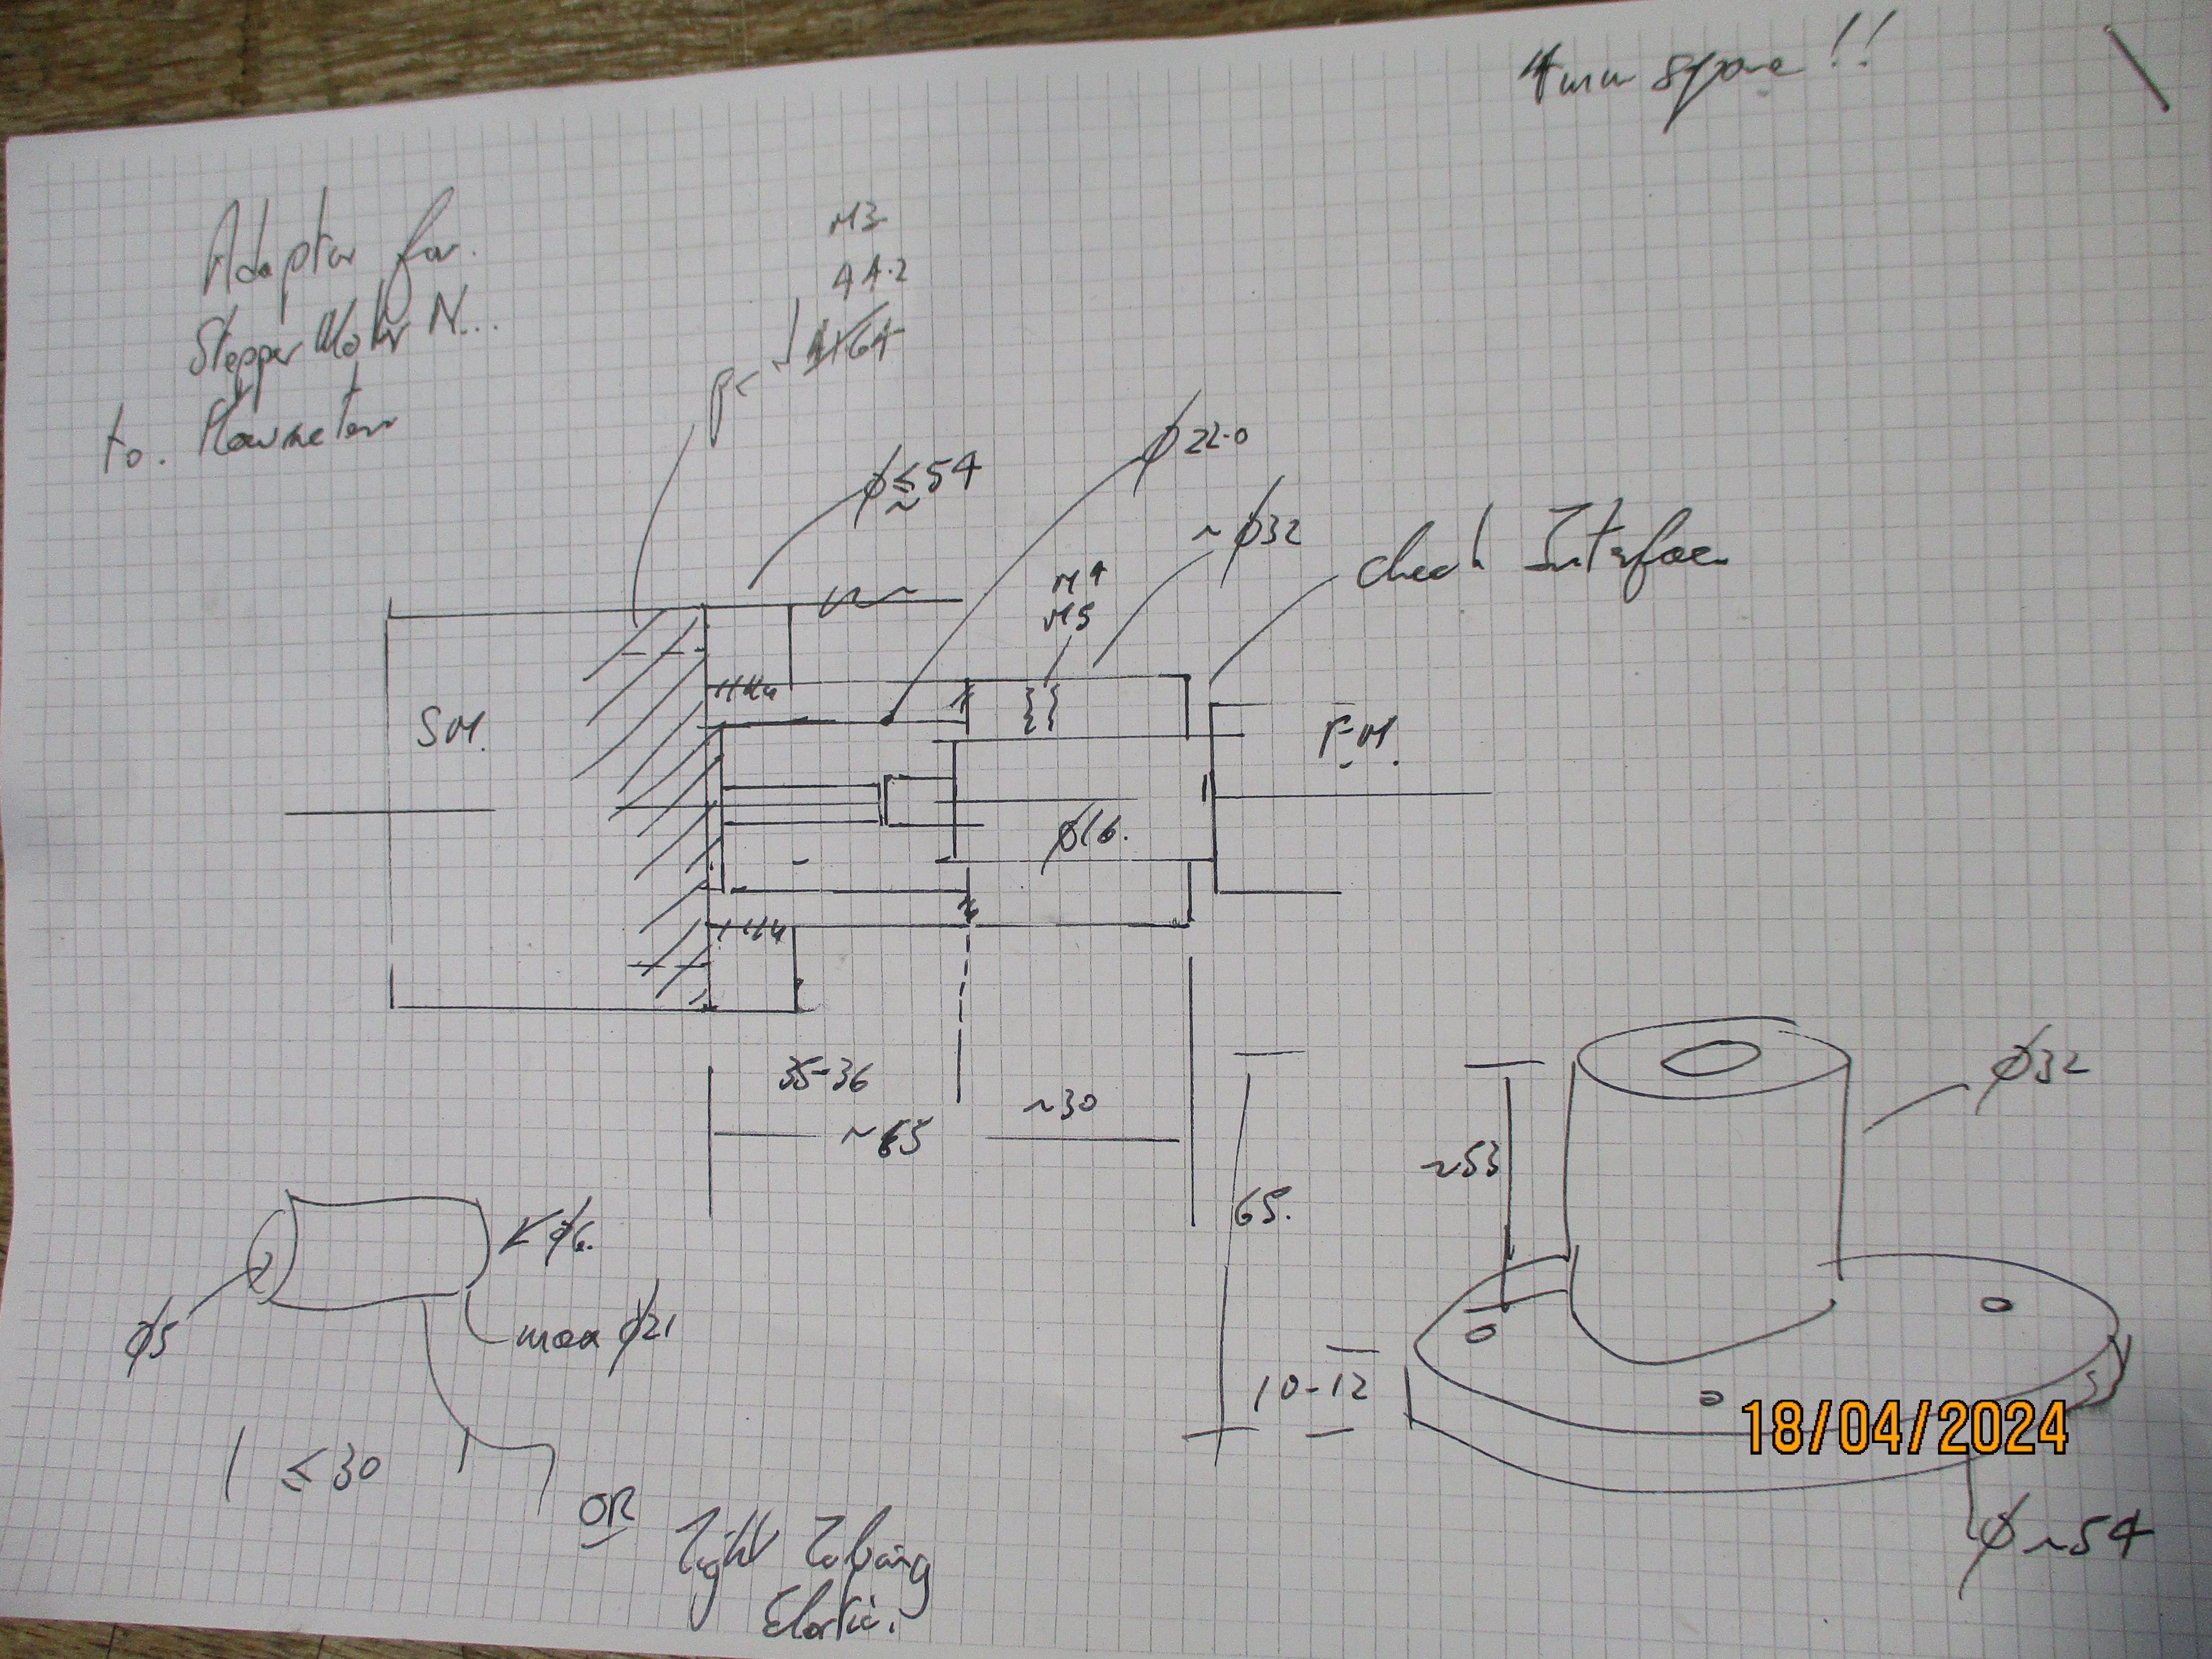 4mm spare !!
Adaptor for.
Stepper Motor N...
to. Flowmeter
M3
44.2
PC
φ ≤ 54
~
φ 22.0
~ φ32
M4
M5
check Interface
SM.
F-M.
φ16.
35-36
~ 65
~30
65.
~53
10-12
φ32
φ ~54
φ6.
φ5
max φ21
l ≤ 30
OR
Tight Tubing
Elastic.
18/04/2024